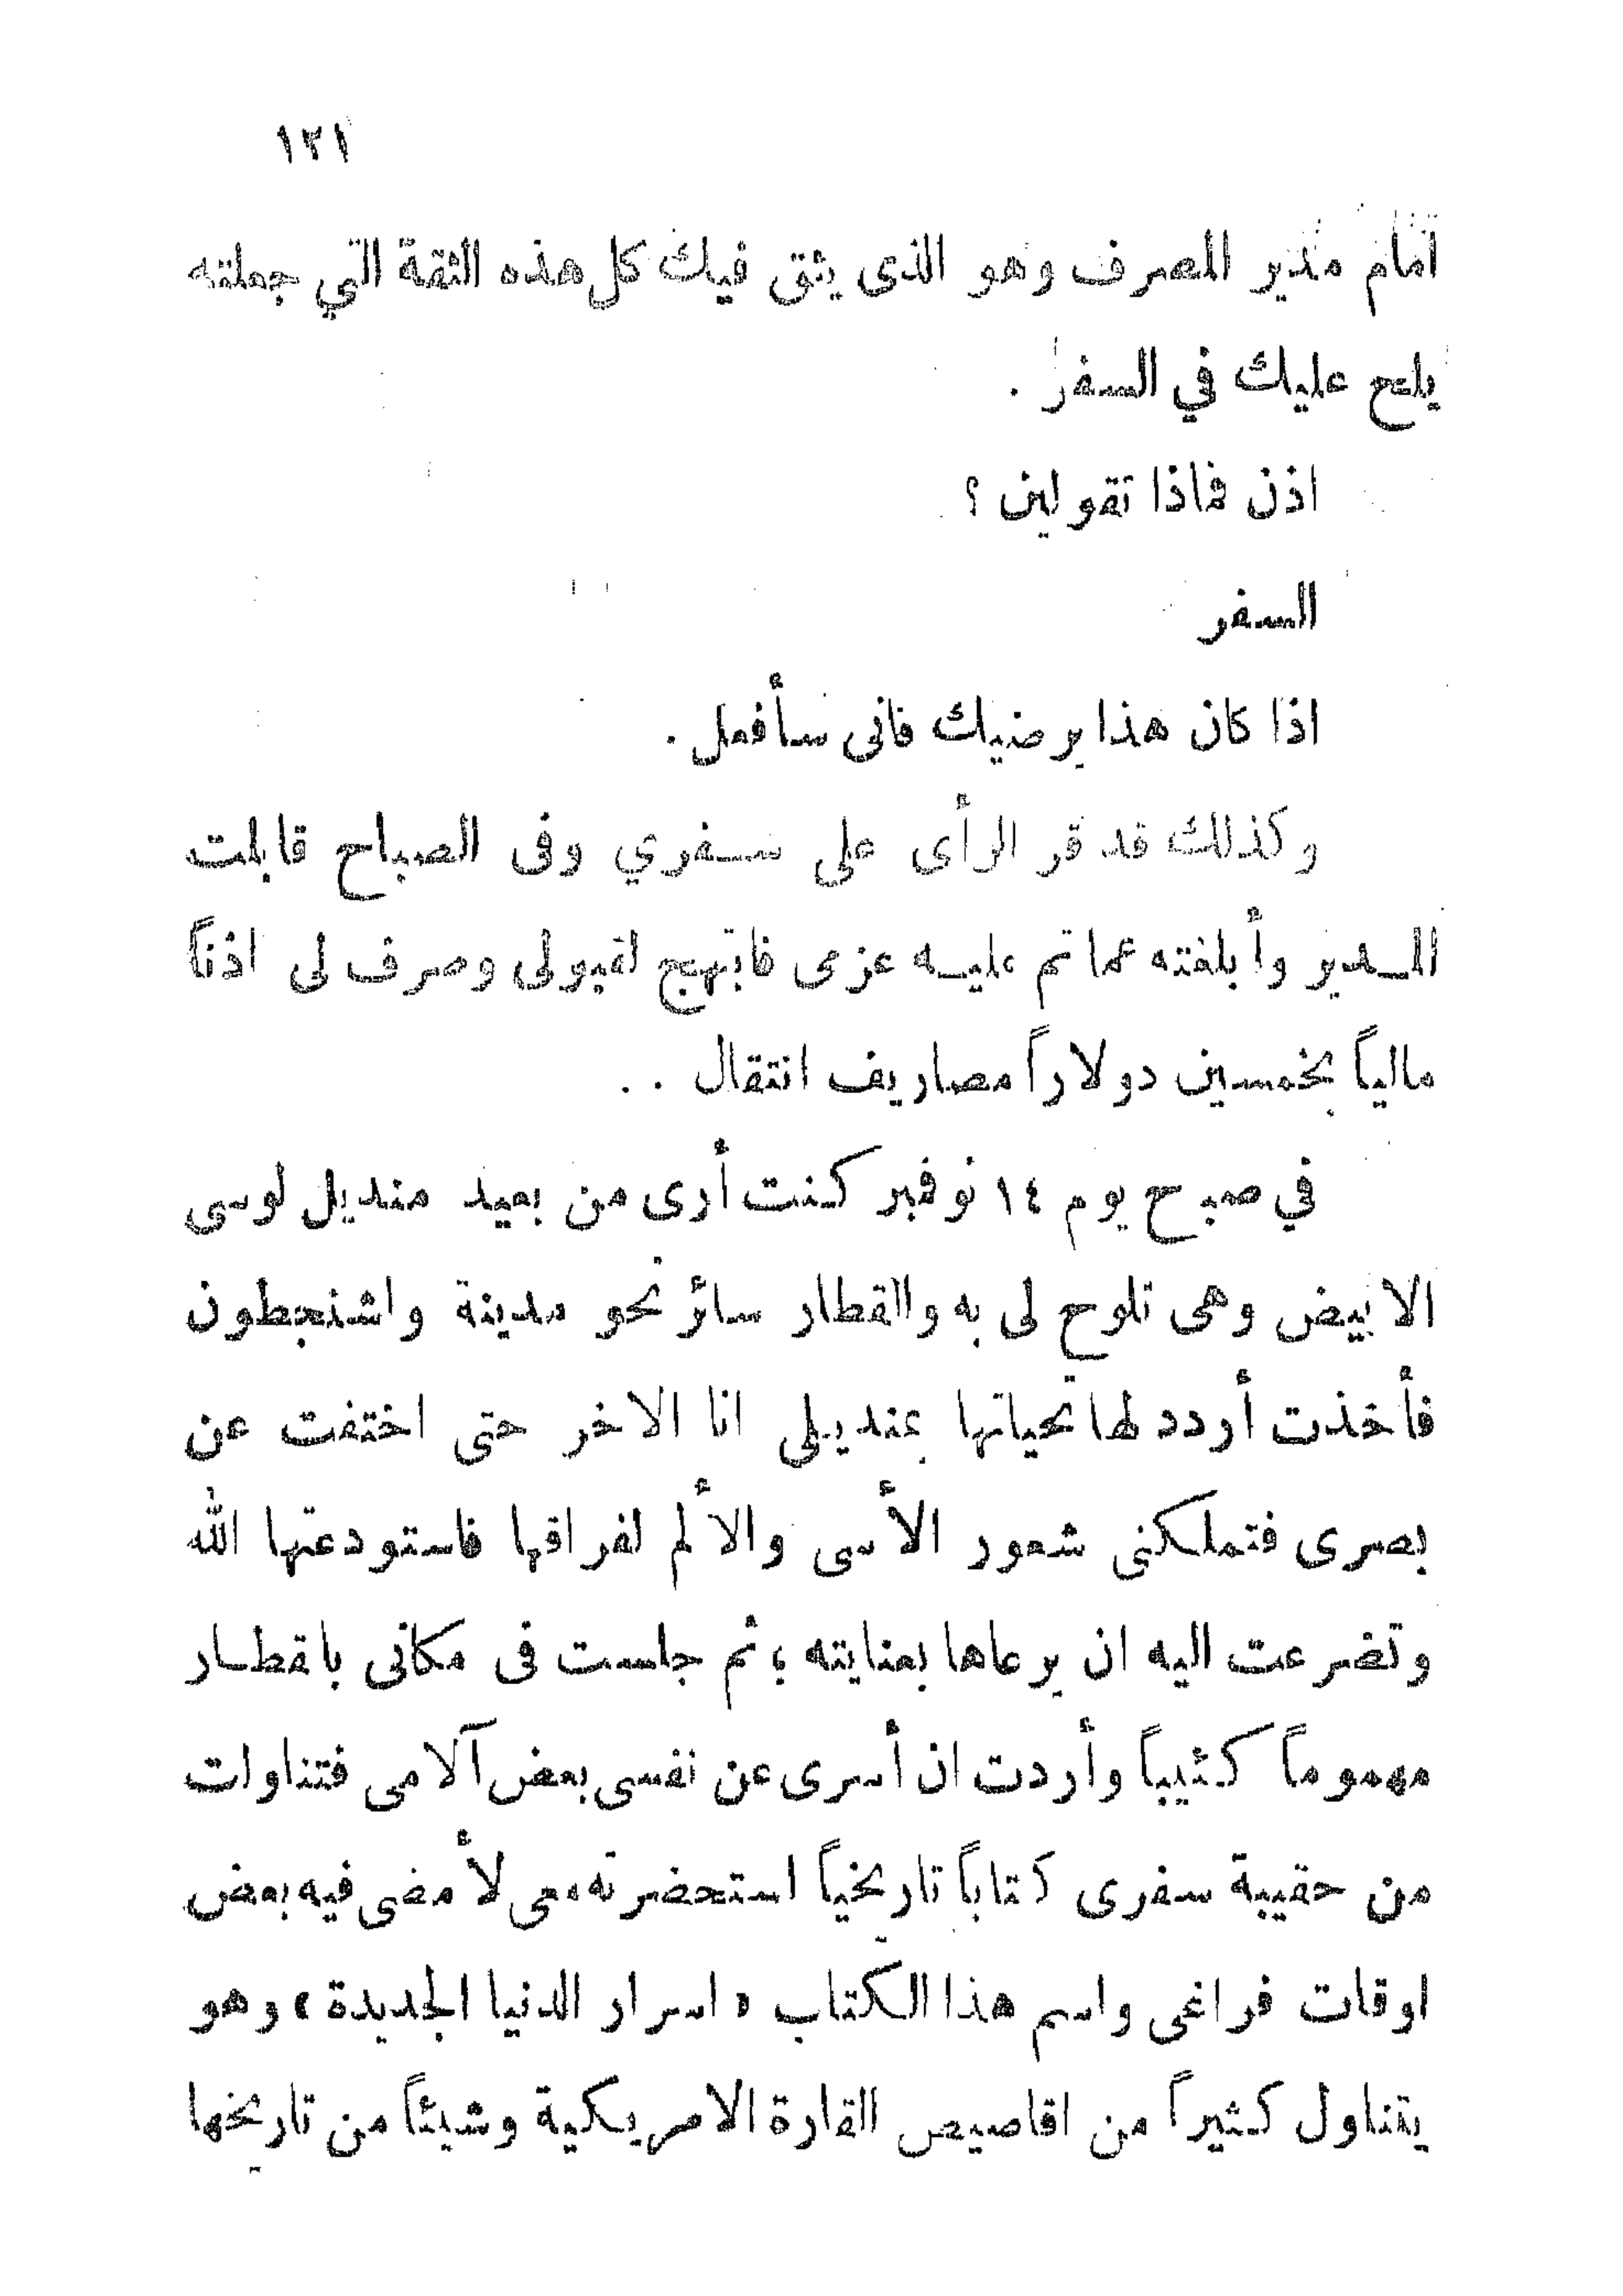 ١٢١
امام مدير المصرف وهو الذى يثق فيك كل هذه الثقة التي جعلته
يلح عليك في السفر .
اذن فماذا تقولين ؟
السفر
اذا كان هذا يرضيك فانى سأفعل .
وكذلك قد قر الرأى على سفري وفى الصباح قابلت
المدير وأبلغته عما تم عليه عزمى فابتهج لقبولى وصرف لى اذناً
مالياً بخمسين دولاراً مصاريف انتقال . .
في صبح يوم ١٤ نوفمبر كنت أرى من بعيد منديل لوسى
الابيض وهى تلوح لى به والقطار سائر نحو مدينة واشنجطون
فأخذت أردد لها تحياتها بمنديلى انا الاخر حتى اختفت عن
بصرى فتملكنى شعور الأسى والألم لفراقها فاستودعتها الله
وتضرعت اليه ان يرعاها بعنايته ، ثم جلست فى مكانى باقطار
مهموماً كئيباً وأردت ان أسرى عن نفسى بعض آلامى فتناوات
من حقيبة سفرى كتاباً تاريخياً استحضرته معى لأمضى فيه بعض
اوقات فراغى واسم هذا الكتاب « اسرار الدنيا الجديدة » وهو
يتناول كثيراً من اقاصيص القارة الامريكية وشيئاً من تاريخها